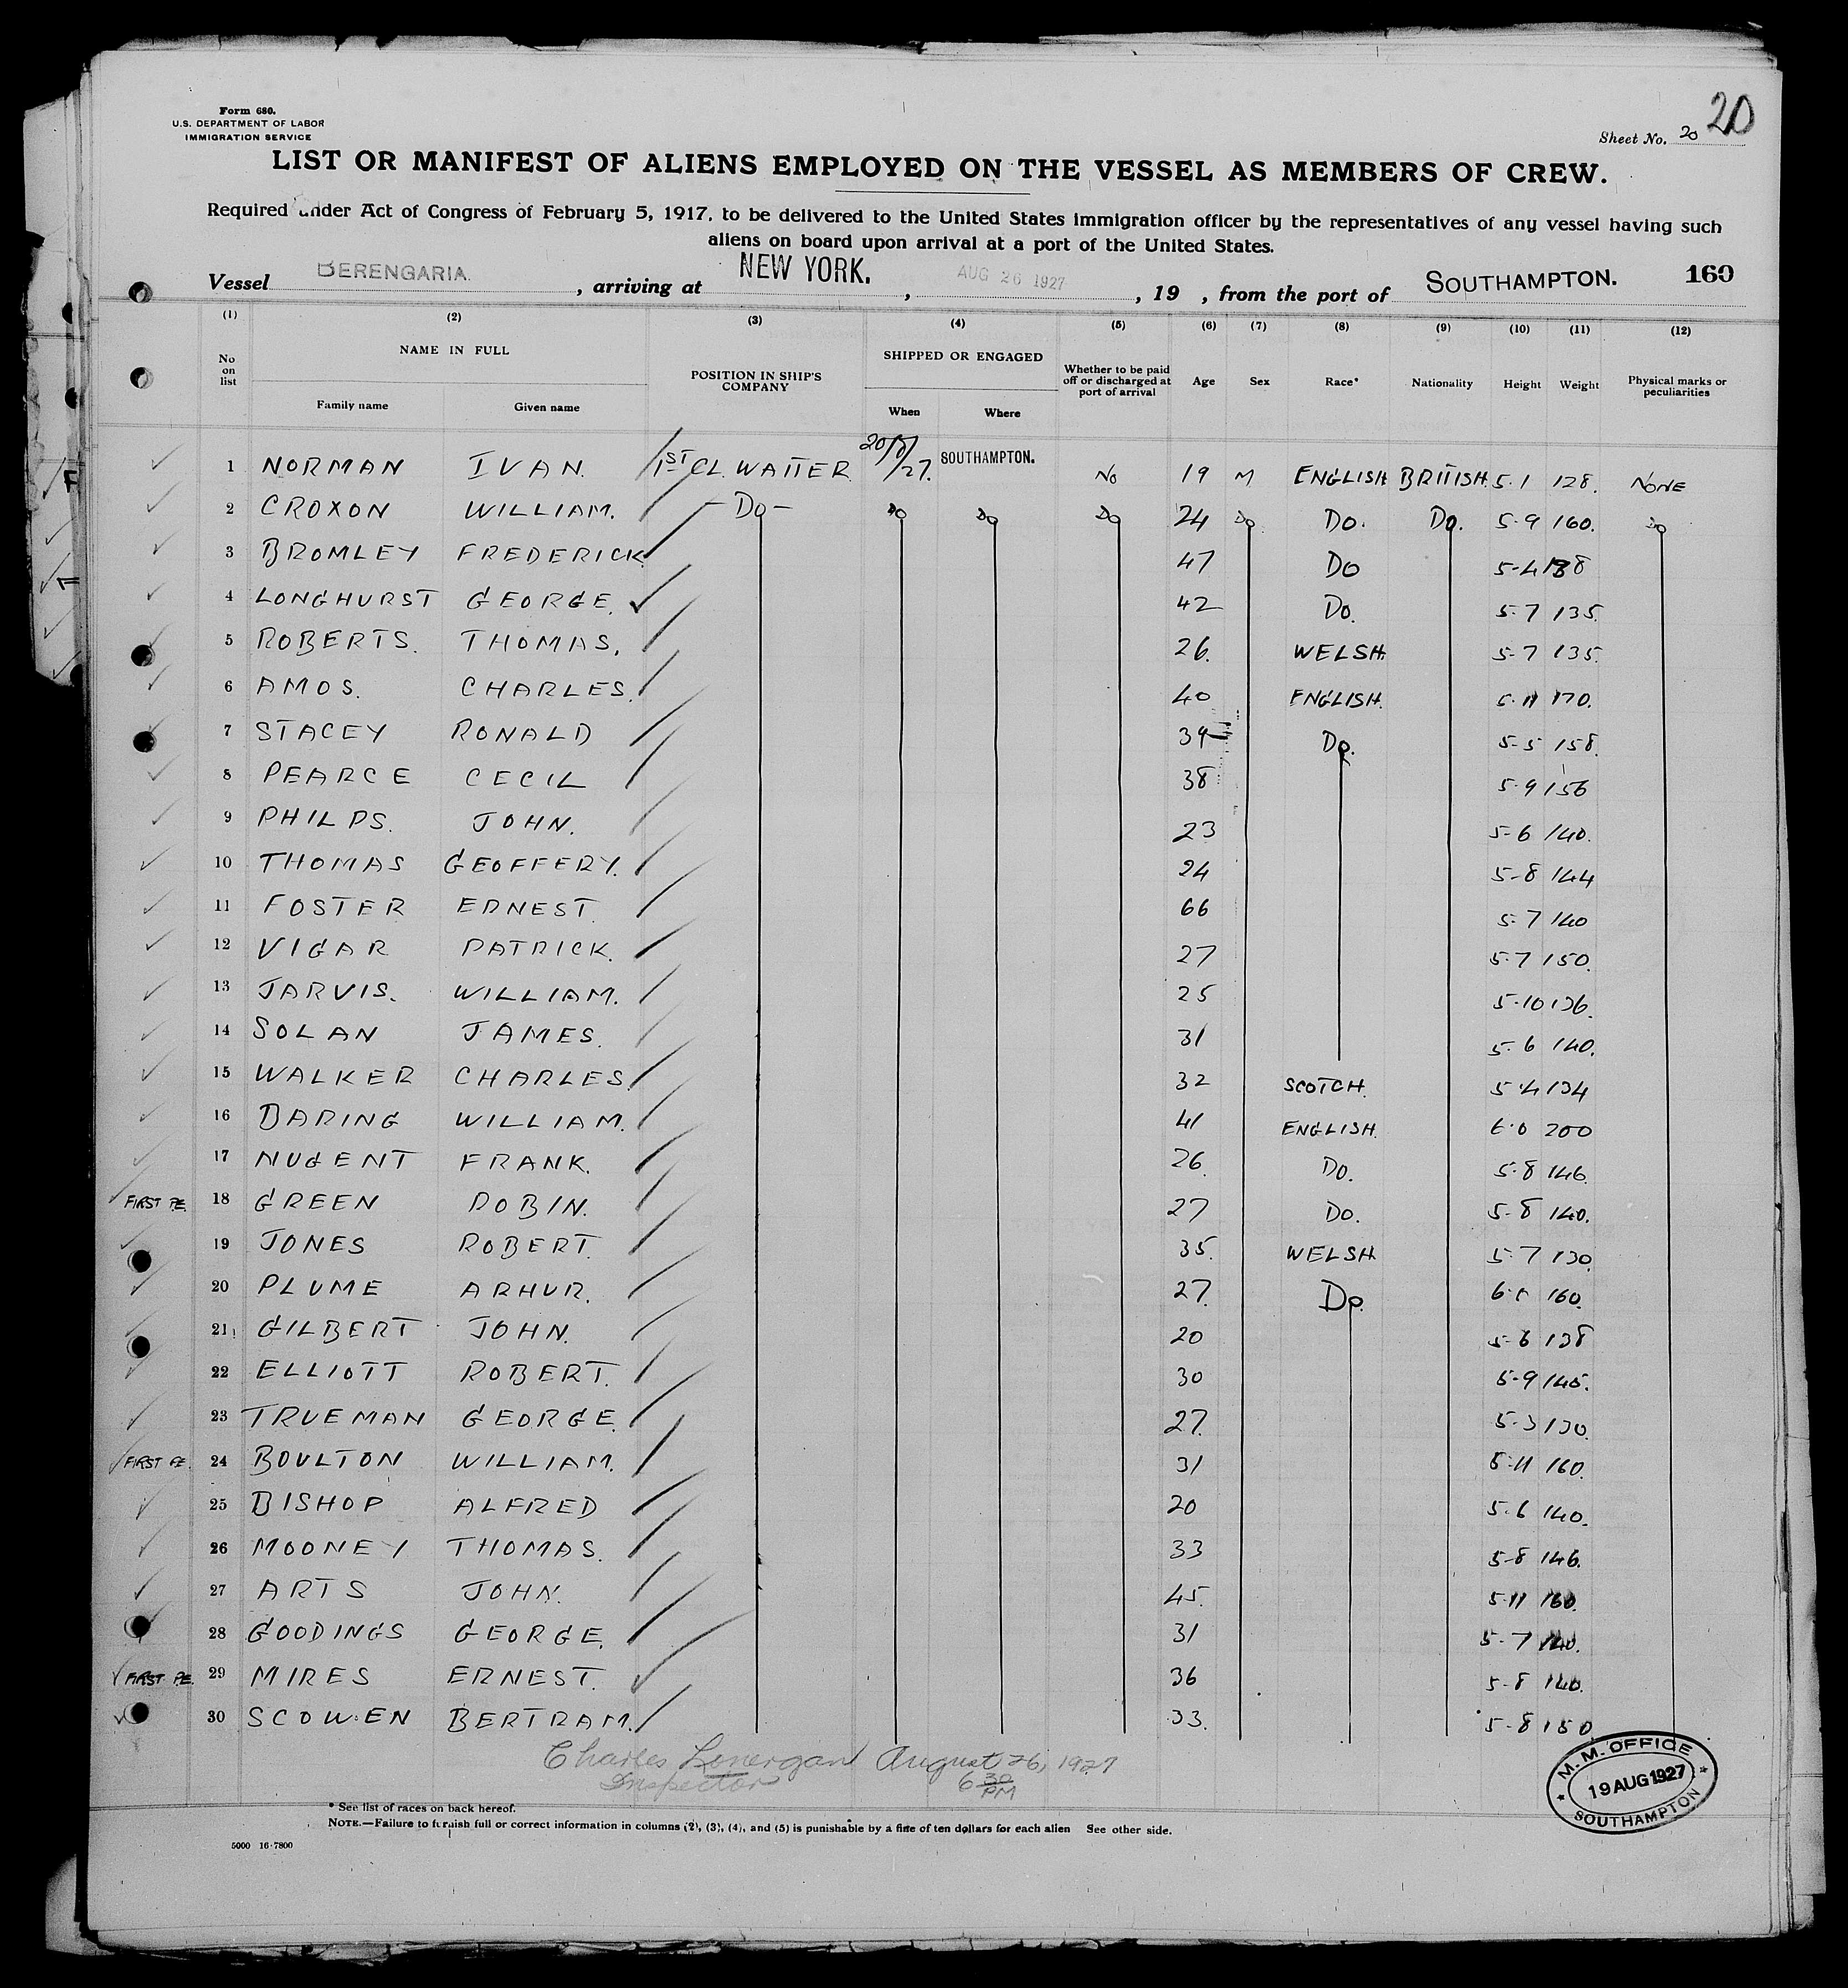 Form 680.
U.S. DEPARTMENT OF LABOR
IMMIGRATION SERVICE
Sheet No. 20 20
LIST OR MANIFEST OF ALIENS EMPLOYED ON THE VESSEL AS MEMBERS OF CREW.
Required under Act of Congress of February 5, 1917, to be delivered to the United States immigration officer by the representatives of any vessel having such
aliens on board upon arrival at a port of the United States.
Vessel BERENGARIA, arriving at NEW YORK., AUG 26 1927, 19 , from the port of SOUTHAMPTON. 160
(1) (2) (3) (4) (5) (6) (7) (8) (9) (10) (11) (12)
No on list NAME IN FULL Family name Given name POSITION IN SHIP'S COMPANY SHIPPED OR ENGAGED When Where Whether to be paid off or discharged at port of arrival Age Sex Race* Nationality Height Weight Physical marks or peculiarities
1 NORMAN IVAN. 1ST CL. WAITER 20/8/27. SOUTHAMPTON. No 19 M ENGLISH BRITISH. 5.1 128. NONE
2 CROXON WILLIAM. - Do - Do Do Do 24 Do Do. Do. 5.9 160. Do
3 BROMLEY FREDERICK. 47 Do 5-4 138
4 LONGHURST GEORGE. 42 Do. 5-7 135.
5 ROBERTS. THOMAS. 26. WELSH. 5-7 135.
6 AMOS. CHARLES. 40 ENGLISH. 5.11 170.
7 STACEY RONALD 39 Do. 5-5 158.
8 PEARCE CECIL 38 5.9 156
9 PHILPS. JOHN. 23 5-6 140.
10 THOMAS GEOFFERY. 24 5-8 144
11 FOSTER ERNEST. 66 5-7 140
12 VIGAR PATRICK. 27 5.7 150.
13 JARVIS. WILLIAM. 25 5-10 136.
14 SOLAN JAMES. 31 5-6 140.
15 WALKER CHARLES. 32 SCOTCH. 5.4 134
16 BARING WILLIAM. 41 ENGLISH. 6.0 200
17 NUGENT FRANK. 26. Do. 5.8 146.
FIRST P.E. 18 GREEN ROBIN. 27 Do. 5-8 140.
19 JONES ROBERT. 35. WELSH 5-7 130.
20 PLUME ARHUR. 27. Do. 160.
21 GILBERT JOHN. 20 5-6 138
22 ELLIOTT ROBERT. 30 5-9 145.
23 TRUEMAN GEORGE. 27. 5-3 130.
FIRST P.E. 24 BOULTON WILLIAM. 31 5-11 160.
25 BISHOP ALFRED 20 5.6 140.
26 MOONEY THOMAS. 33 5-8 146.
27 ARTS JOHN. 45. 5.11 160.
28 GOODINGS GEORGE. 31 5-7 140.
FIRST P.E. 29 MIRES ERNEST. 36 5-8 140.
30 SCOWEN BERTRAM. 33. 5-8 150
Charles Lonergan August 26, 1927
Inspector 6 30 PM
M.M. OFFICE
19 AUG 1927
SOUTHAMPTON
* See list of races on back hereof.
NOTE.—Failure to furnish full or correct information in columns (2), (3), (4), and (5) is punishable by a fine of ten dollars for each alien See other side.
5000 16-7800